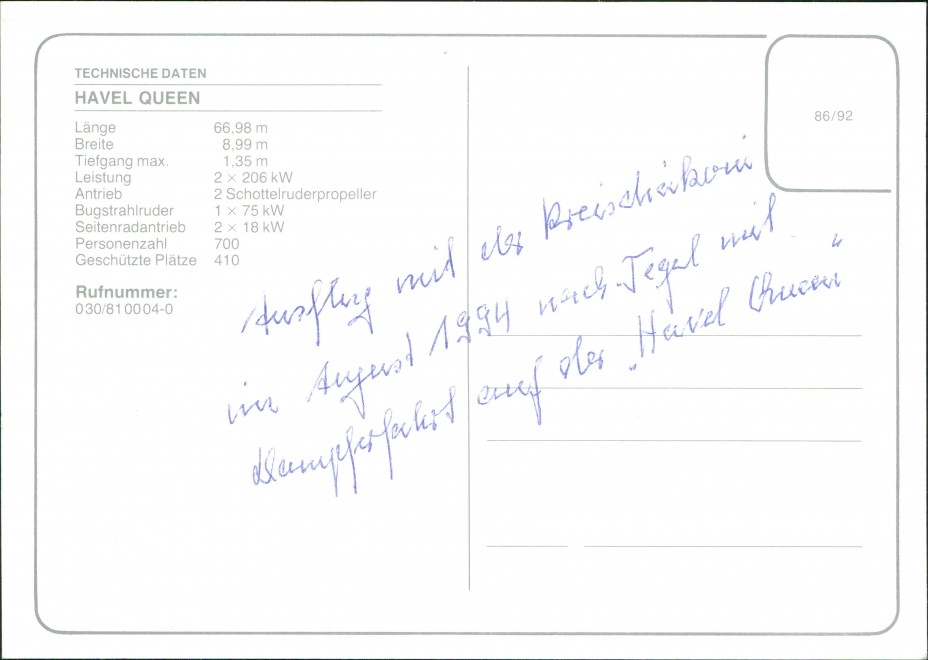 TECHNISCHE DATEN
HAVEL QUEEN
Länge 66,98 m
Breite 8,99 m
Tiefgang max. 1,35 m
Leistung 2 × 206 kW
Antrieb 2 Schottelruderpropeller
Bugstrahlruder 1 × 75 kW
Seitenradantrieb 2 × 18 kW
Personenzahl 700
Geschützte Plätze 410
Rufnummer:
030/810004-0
86/92
Ausflug mit der
im August 1994 nach Tegel mit
Dampferfahrt auf der „Havel Queen"